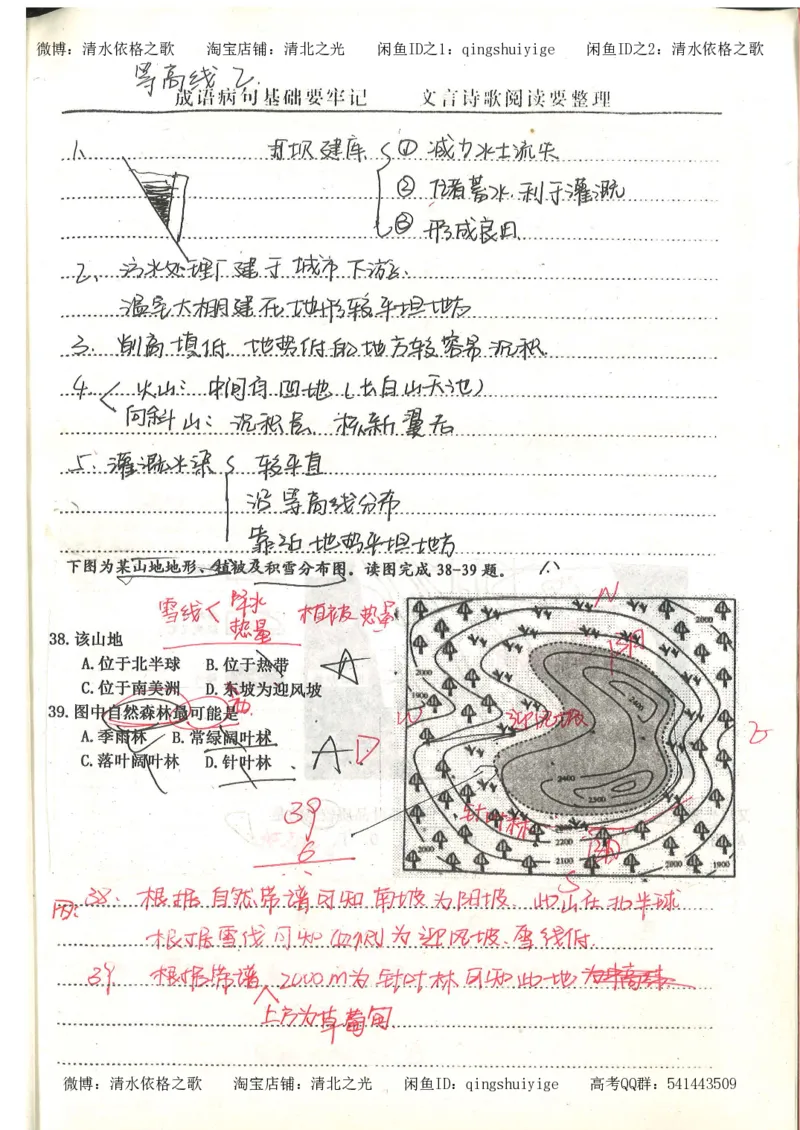 微博：清水依格之歌 淘宝店铺：清北之光 闲鱼ID之1：qingshuiyige 闲鱼ID之2：清水依格之歌
等高线 2.
成语病句基础要牢记 文言诗歌阅读要整理
1. 打坝建库 ① 减少水土流失
② 储蓄水,利于灌溉
③ 形成良田
2. 污水处理厂建于城市下游
温室大棚建在地形较平坦地方
3. 削高填低 地势低的地方较容易沉积
4. 火山：中间有凹地（长白山天池）
向斜山：沉积层,核新翼老
5. 灌溉水渠 较平直
沿等高线分布
靠近地势平坦地方
下图为某山地地形、植被及积雪分布图。读图完成 38-39 题。
雪线 降水 热量 植被 热量
38. 该山地
A. 位于北半球 B. 位于热带
C. 位于南美洲 D. 东坡为迎风坡
A
39. 图中自然森林最可能是
A. 季雨林 B. 常绿阔叶林
C. 落叶阔叶林 D. 针叶林
A D
39
6
N
阴
2000
2000
1900
2400
W 迎风坡
2400
2300
针叶林
2200
2100
2000
2000 1900
阳
S
38. 根据自然带谱可知南坡为阳坡, 此山在北半球
根据雪线可知西侧为迎风坡,雪线低.
39. 根据带谱 2000m为针叶林可知此地
上方为草甸
微博：清水依格之歌 淘宝店铺：清北之光 闲鱼ID：qingshuiyige 高考QQ群：541443509